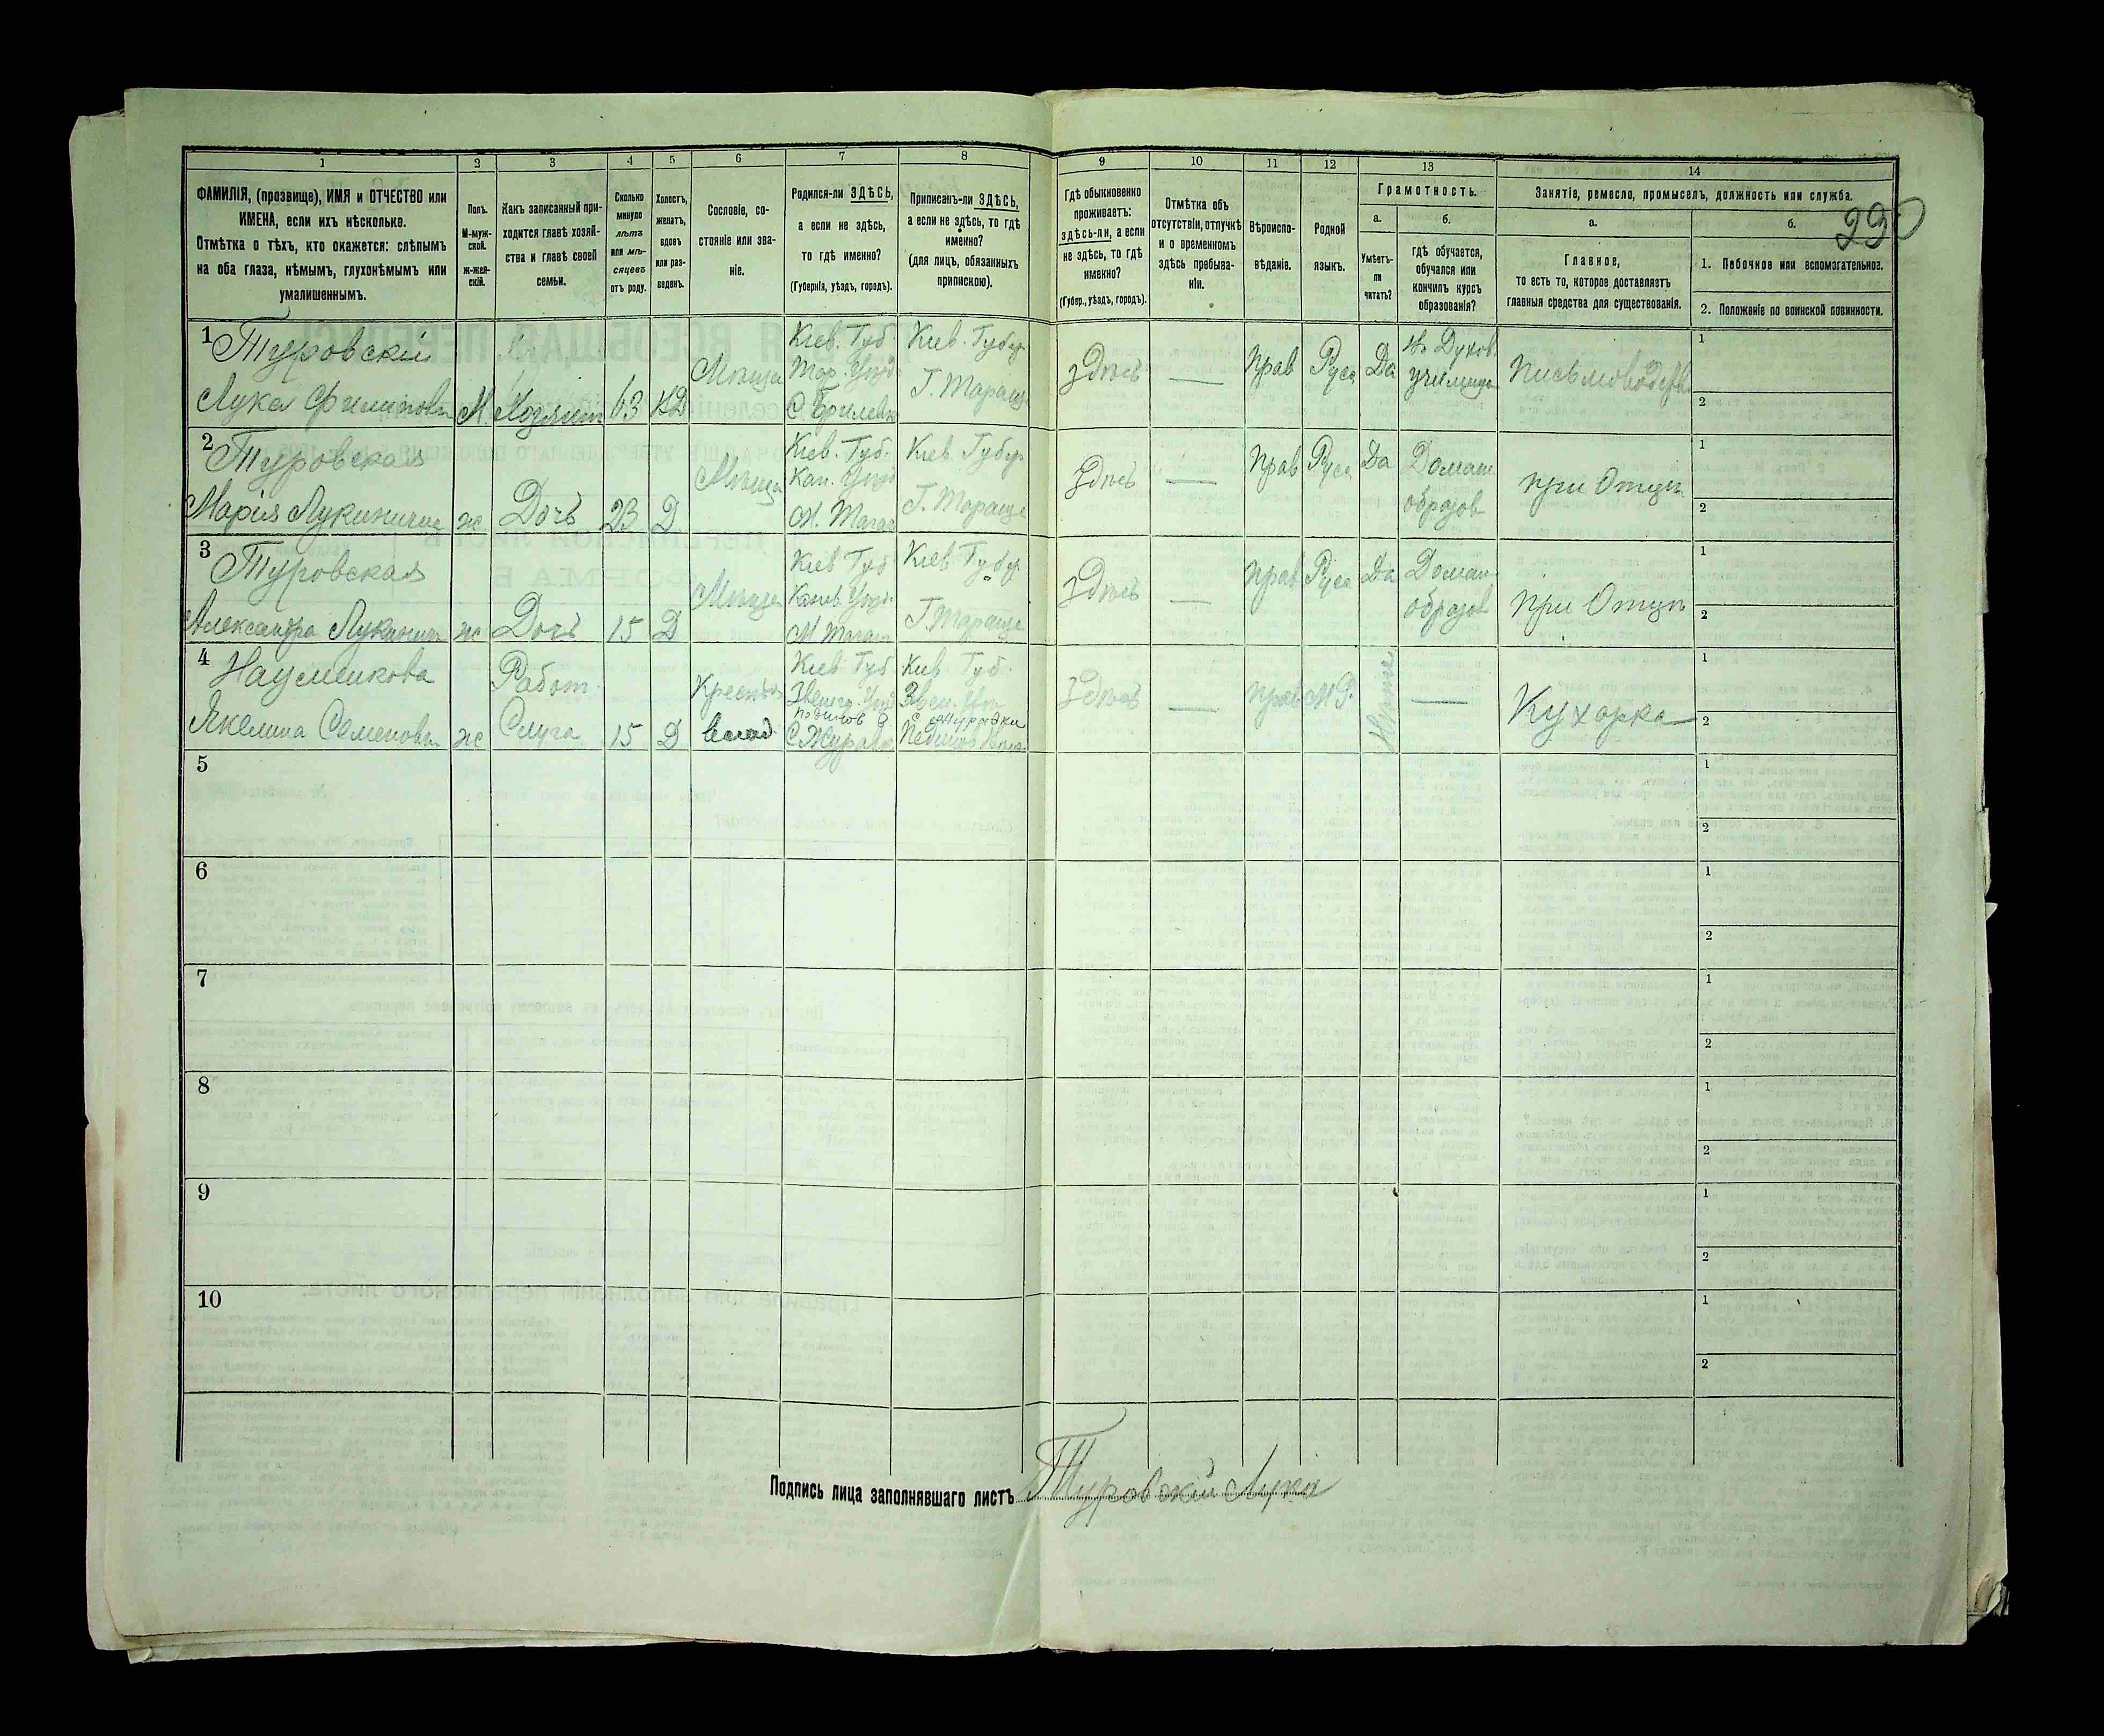 1 2 3 4 5 6 7 8 9 10 11 12 13 14
ФАМИЛІЯ, (прозвище), ИМЯ и ОТЧЕСТВО или
ИМЕНА, если ихъ нѣсколько.
Отмѣтка о тѣхъ, кто окажется: слѣпымъ
на оба глаза, нѣмымъ, глухонѣмымъ или
умалишеннымъ.
Полъ.
М-муж-
ской.
Ж-жен-
скій.
Какъ записанный при-
ходится главѣ хозяй-
ства и главѣ своей
семьи.
Сколько
минуло
лѣтъ
или мѣ-
сяцевъ
отъ роду.
Холостъ,
женатъ,
вдовъ
или раз-
веденъ.
Сословіе, со-
стояніе или зва-
ніе.
Родился-ли ЗДѢСЬ,
а если не здѣсь,
то гдѣ именно?
(Губернія, уѣздъ, городъ).
Приписанъ-ли ЗДѢСЬ,
а если не здѣсь, то гдѣ
именно?
(для лицъ, обязанныхъ
припискою).
Гдѣ обыкновенно
проживаетъ:
здѣсь-ли, а если
не здѣсь, то гдѣ
именно?
(Губер., уѣздъ, городъ).
Отмѣтка объ
отсутствіи, отлучкѣ
и о временномъ
здѣсь пребыва-
ніи.
Вѣроиспо-
вѣданіе.
Родной
языкъ.
Грамотность.
а.
Умѣетъ-
ли
читать?
б.
гдѣ обучается,
обучался или
кончилъ курсъ
образованія?
Занятіе, ремесло, промыселъ, должность или служба.
290
а.
Главное,
то есть то, которое доставляетъ
главныя средства для существованія.
б.
1. Побочное или вспомагательное.
2. Положеніе по воинской повинности.
1 Туровскій Кіев. Губ. Кіев. Губер
Лука Филипов М. Хозяин 63 Мѣща С. Г. Тараща здѣсь — Прав Руса Да училище 1
2
2 Туровская Кіев. Губ. Кіев. Губер
Марія ж Дочь 23 Д Мѣща Кан. М. Г. Тараща здѣсь — Прав Руса Да Домаш образов при Отцѣ 1
2
3 Туровская Кіев Губ Кіев Губер
Александра ж Дочь 15 Д Мѣща Канев. М Г. Тараща здѣсь — прав Руса Да Домаш образов при Отцѣ 1
2
4 Науменкова Работ. Кіев Губ Кіев Губ.
Якелина Семенова ж Слуга 15 Д Звениг. С Журавк здѣсь — прав М.Р. — Кухарка 1
2
5 1
2
6 1
2
7 1
2
8 1
2
9 1
2
10 1
2
Подпись лица заполнявшаго листъ Туровскій Лука